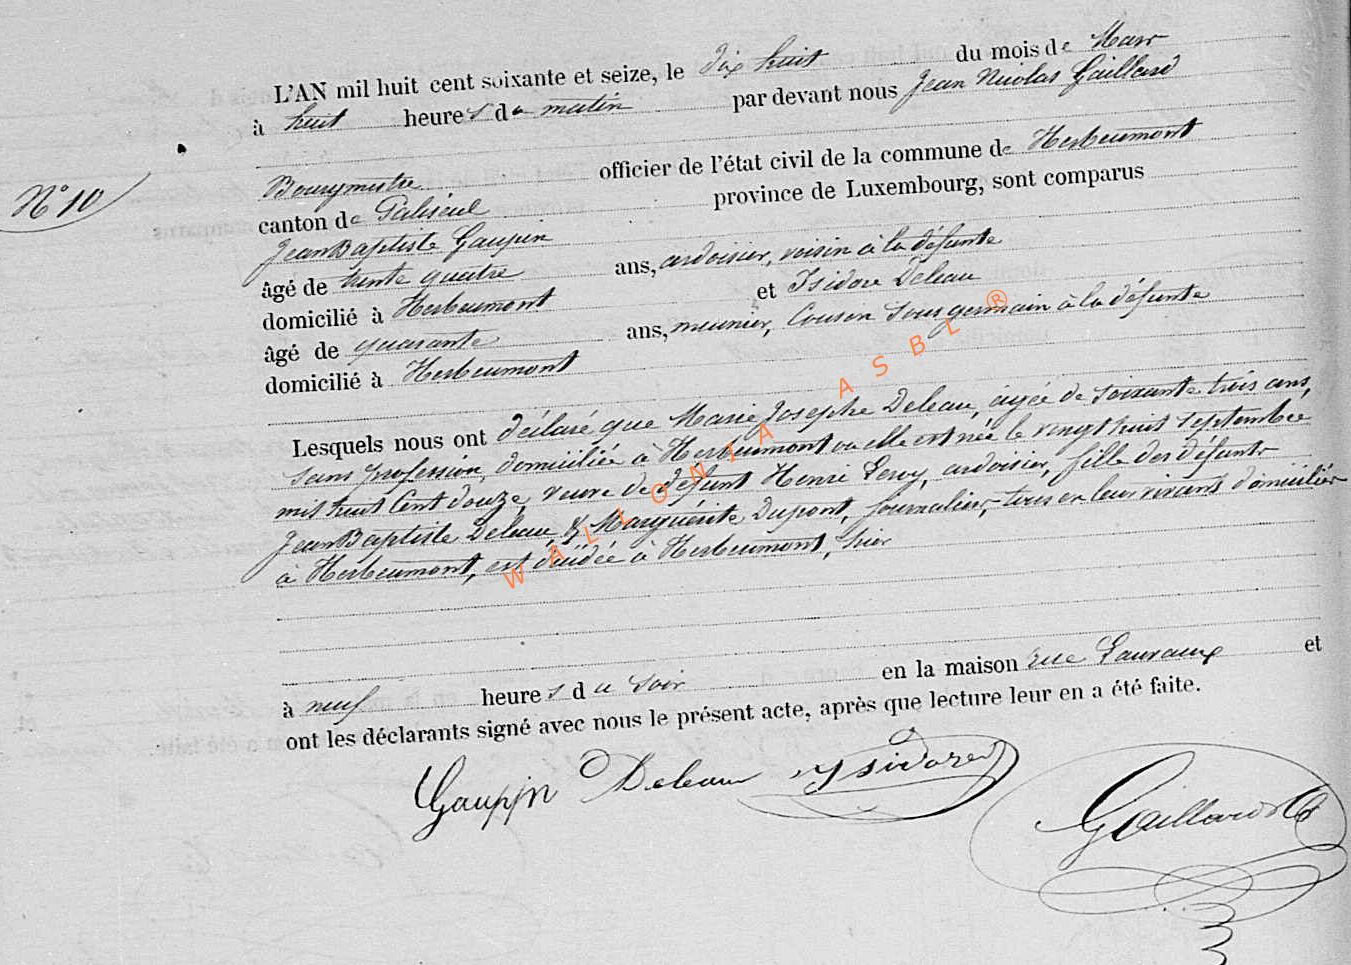 L'AN mil huit cent soixante et seize, le dix huit du mois de Mars
à huit heures du matin par devant nous Jean Nicolas Gaillard
Bourgmestre officier de l'état civil de la commune de Herbeumont
N° 10
canton de Paliseul province de Luxembourg, sont comparus
Jean Baptiste Gaupin
âgé de trente quatre ans, ardoisier, voisin à la défunte
domicilié à Herbeumont et Isidore Deleau
âgé de quarante ans, meunier, Cousin Sous germain à la défunte
domicilié à Herbeumont
Lesquels nous ont déclaré que Marie Josephe Deleau, âgée de soixante trois ans,
sans profession, domiciliée à Herbeumont ou elle est née le vingt huit septembre
mil huit Cent douze, veuve de défunt Henri Leroy, ardoisier, fille des défunts
Jean Baptiste Deleau, & Marguérite Dupont, journalier, tous en leur vivants domiciliés
à Herbeumont, est décédée à Herbeumont, hier
à neuf heures du soir en la maison rue Lauraux et
ont les déclarants signé avec nous le présent acte, après que lecture leur en a été faite.
Gaupin Deleau Isidore
Gaillard
WALLONIA ASBL ®